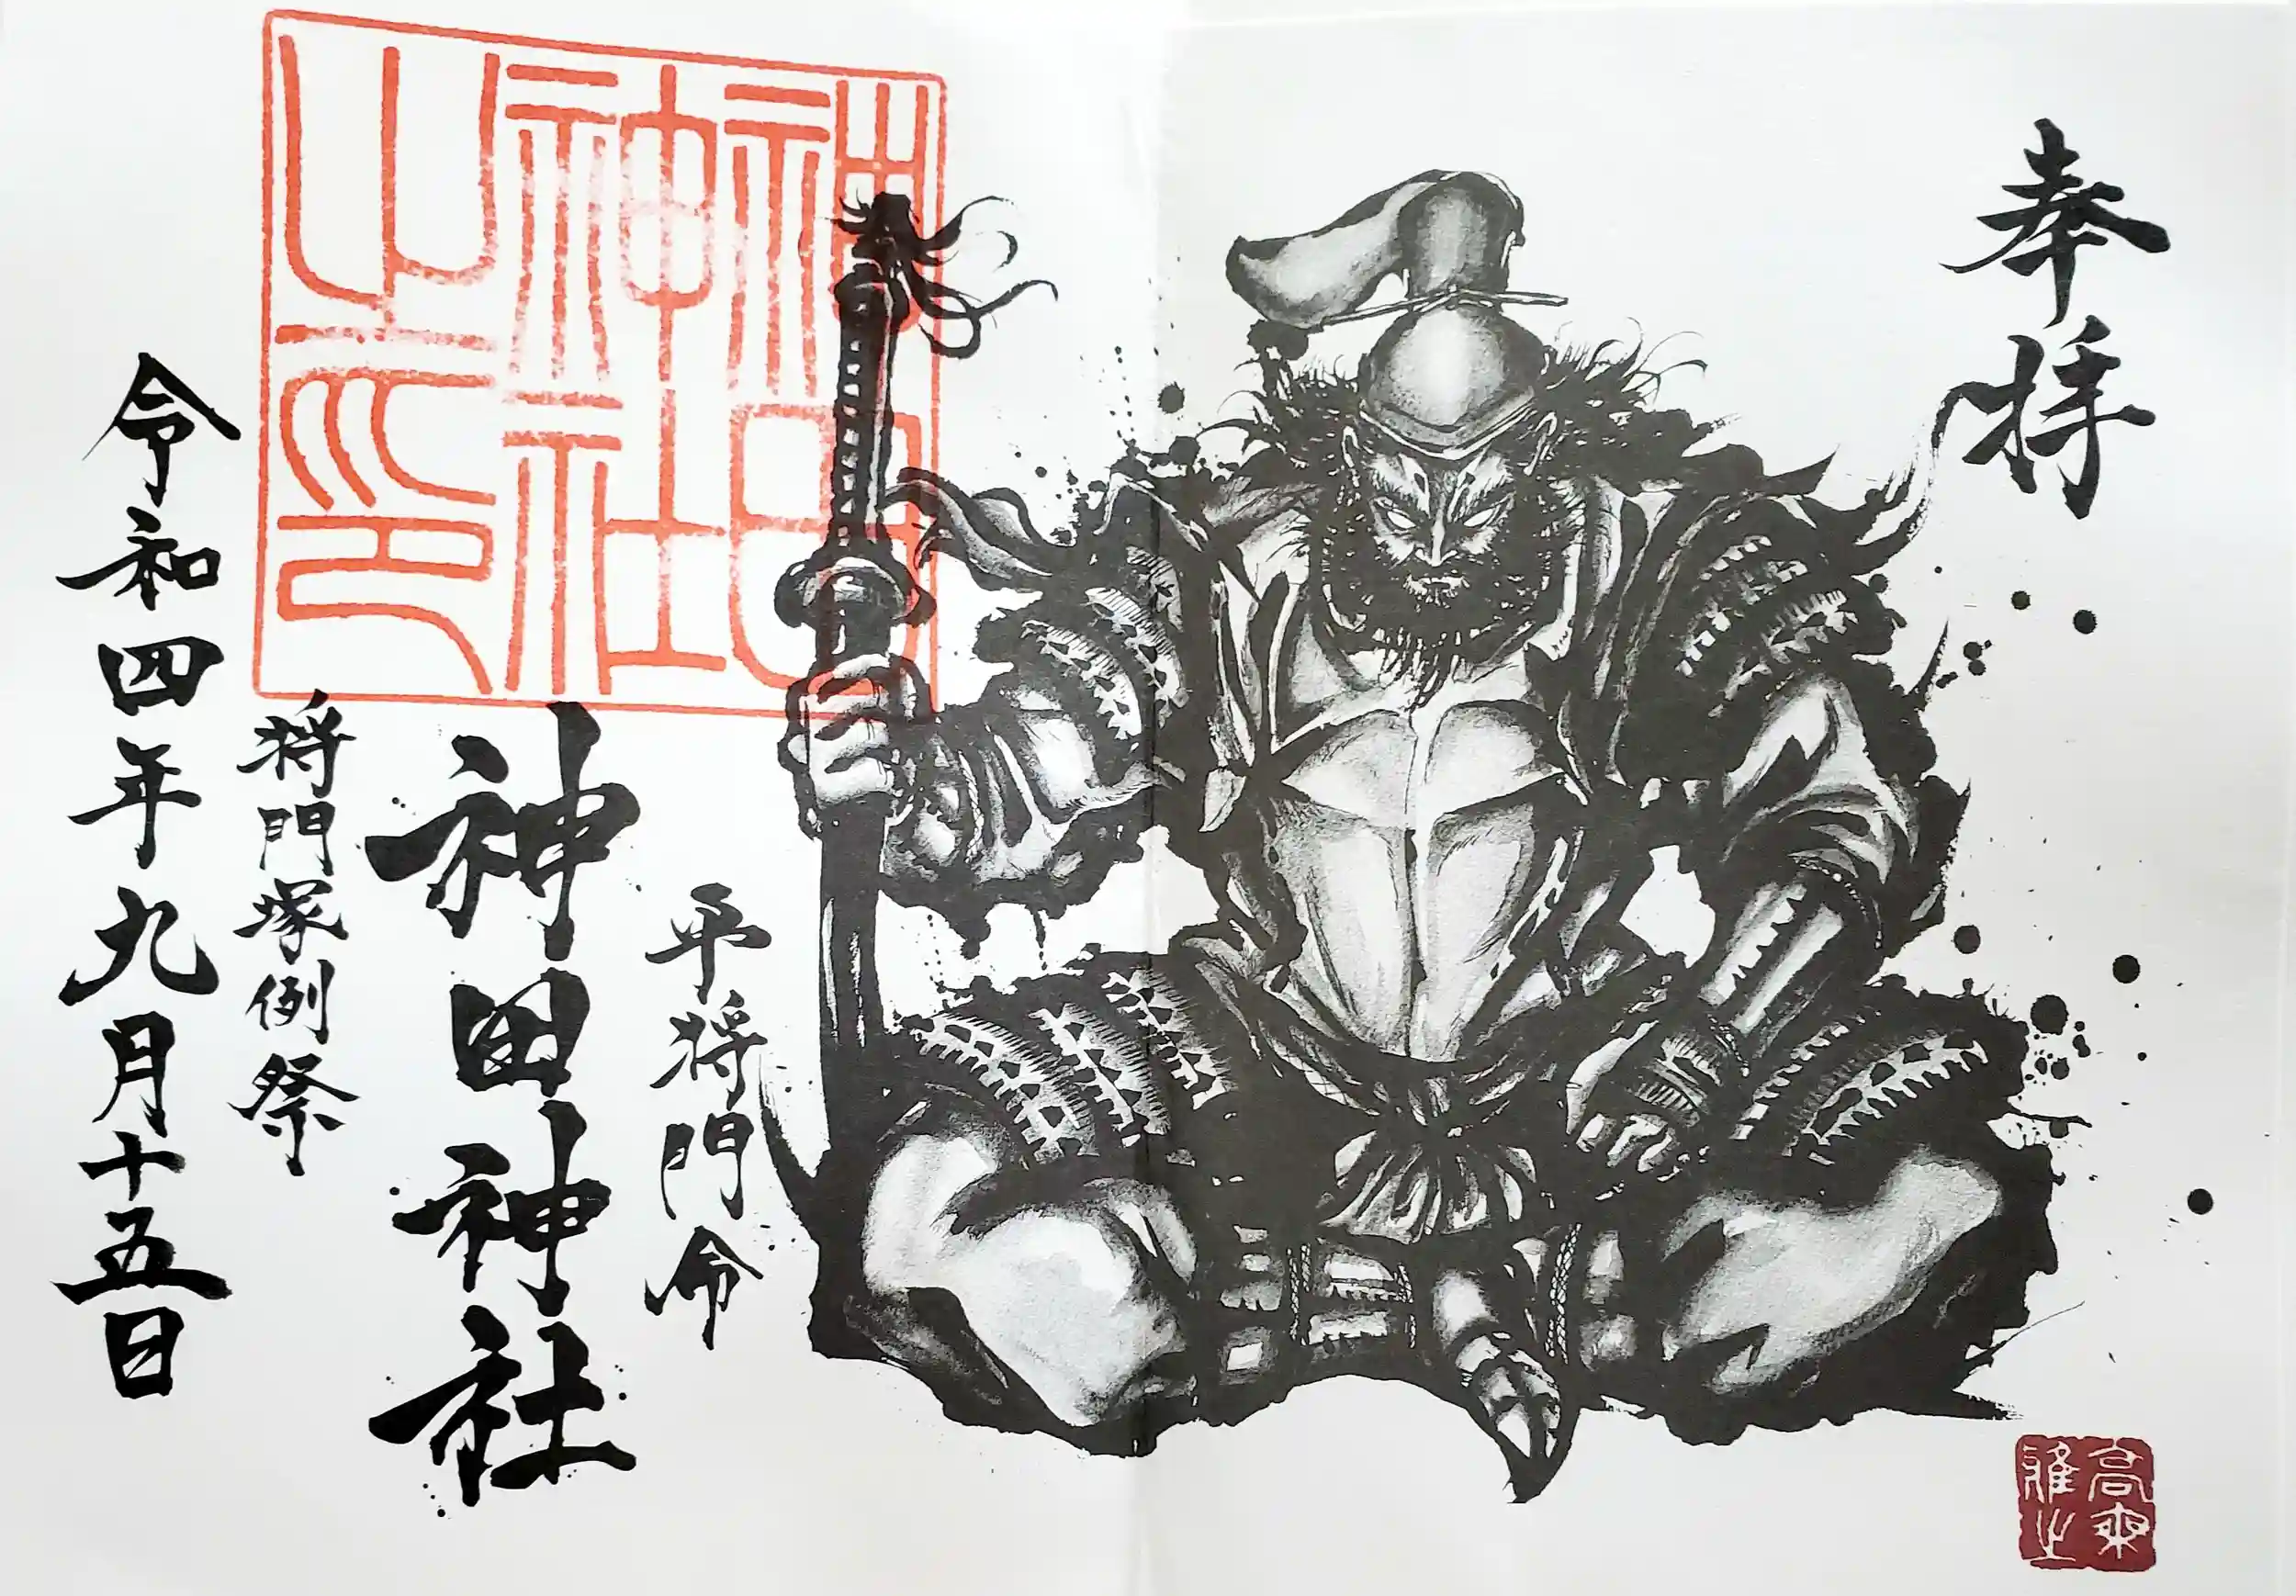 奉拝
平将門命
神田神社
将門塚例祭
令和四年九月十五日
神田神社之印